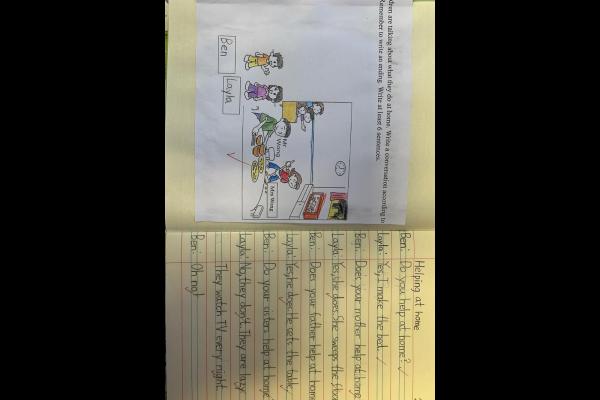 dren are talking about what they do at home. Write a conversation according to
Remember to write an ending. Write at least 6 sentences.
Ben
Layla
Mr Wong
Mrs Wong
Helping at home
Ben: Do you help at home?
Layla: Yes, I make the bed.
Ben: Does your mother help at home
Layla: Yes, she does. She sweeps the floor
Ben: Does your father help at hom
Layla: Yes, he does. He sets the table.
Ben: Do your sisters help at home
Layla: No, they don't. They are lazy.
They watch TV every night.
Ben: Oh no!